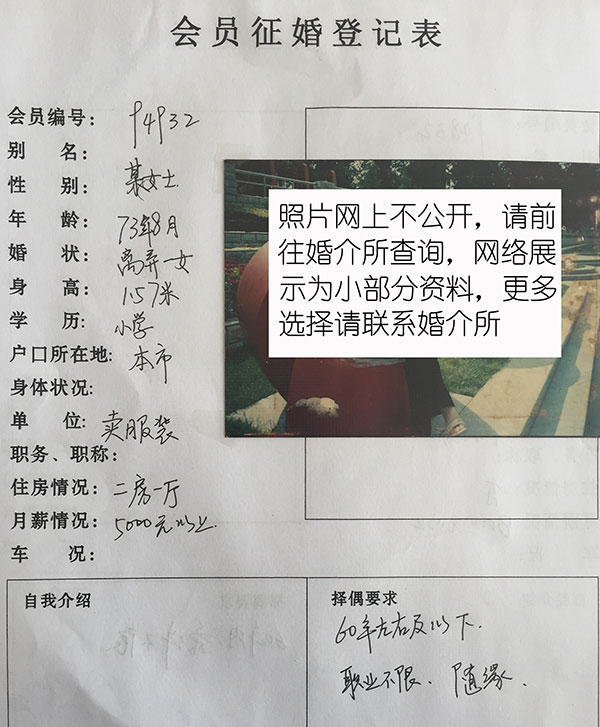 会员征婚登记表
会员编号: 94932
别 名:
性 别: 某女士
年 龄: 73年8月
婚 状: 离异一女
身 高: 1.57米
学 历: 小学
户口所在地: 本市
身体状况:
单 位: 卖服装
职务、职称:
住房情况: 二房一厅
月薪情况: 5000元以上.
车 况:
照片网上不公开，请前
往婚介所查询，网络展
示为小部分资料，更多
选择请联系婚介所
自我介绍
择偶要求
60年左右及以下.
职业不限、随缘.